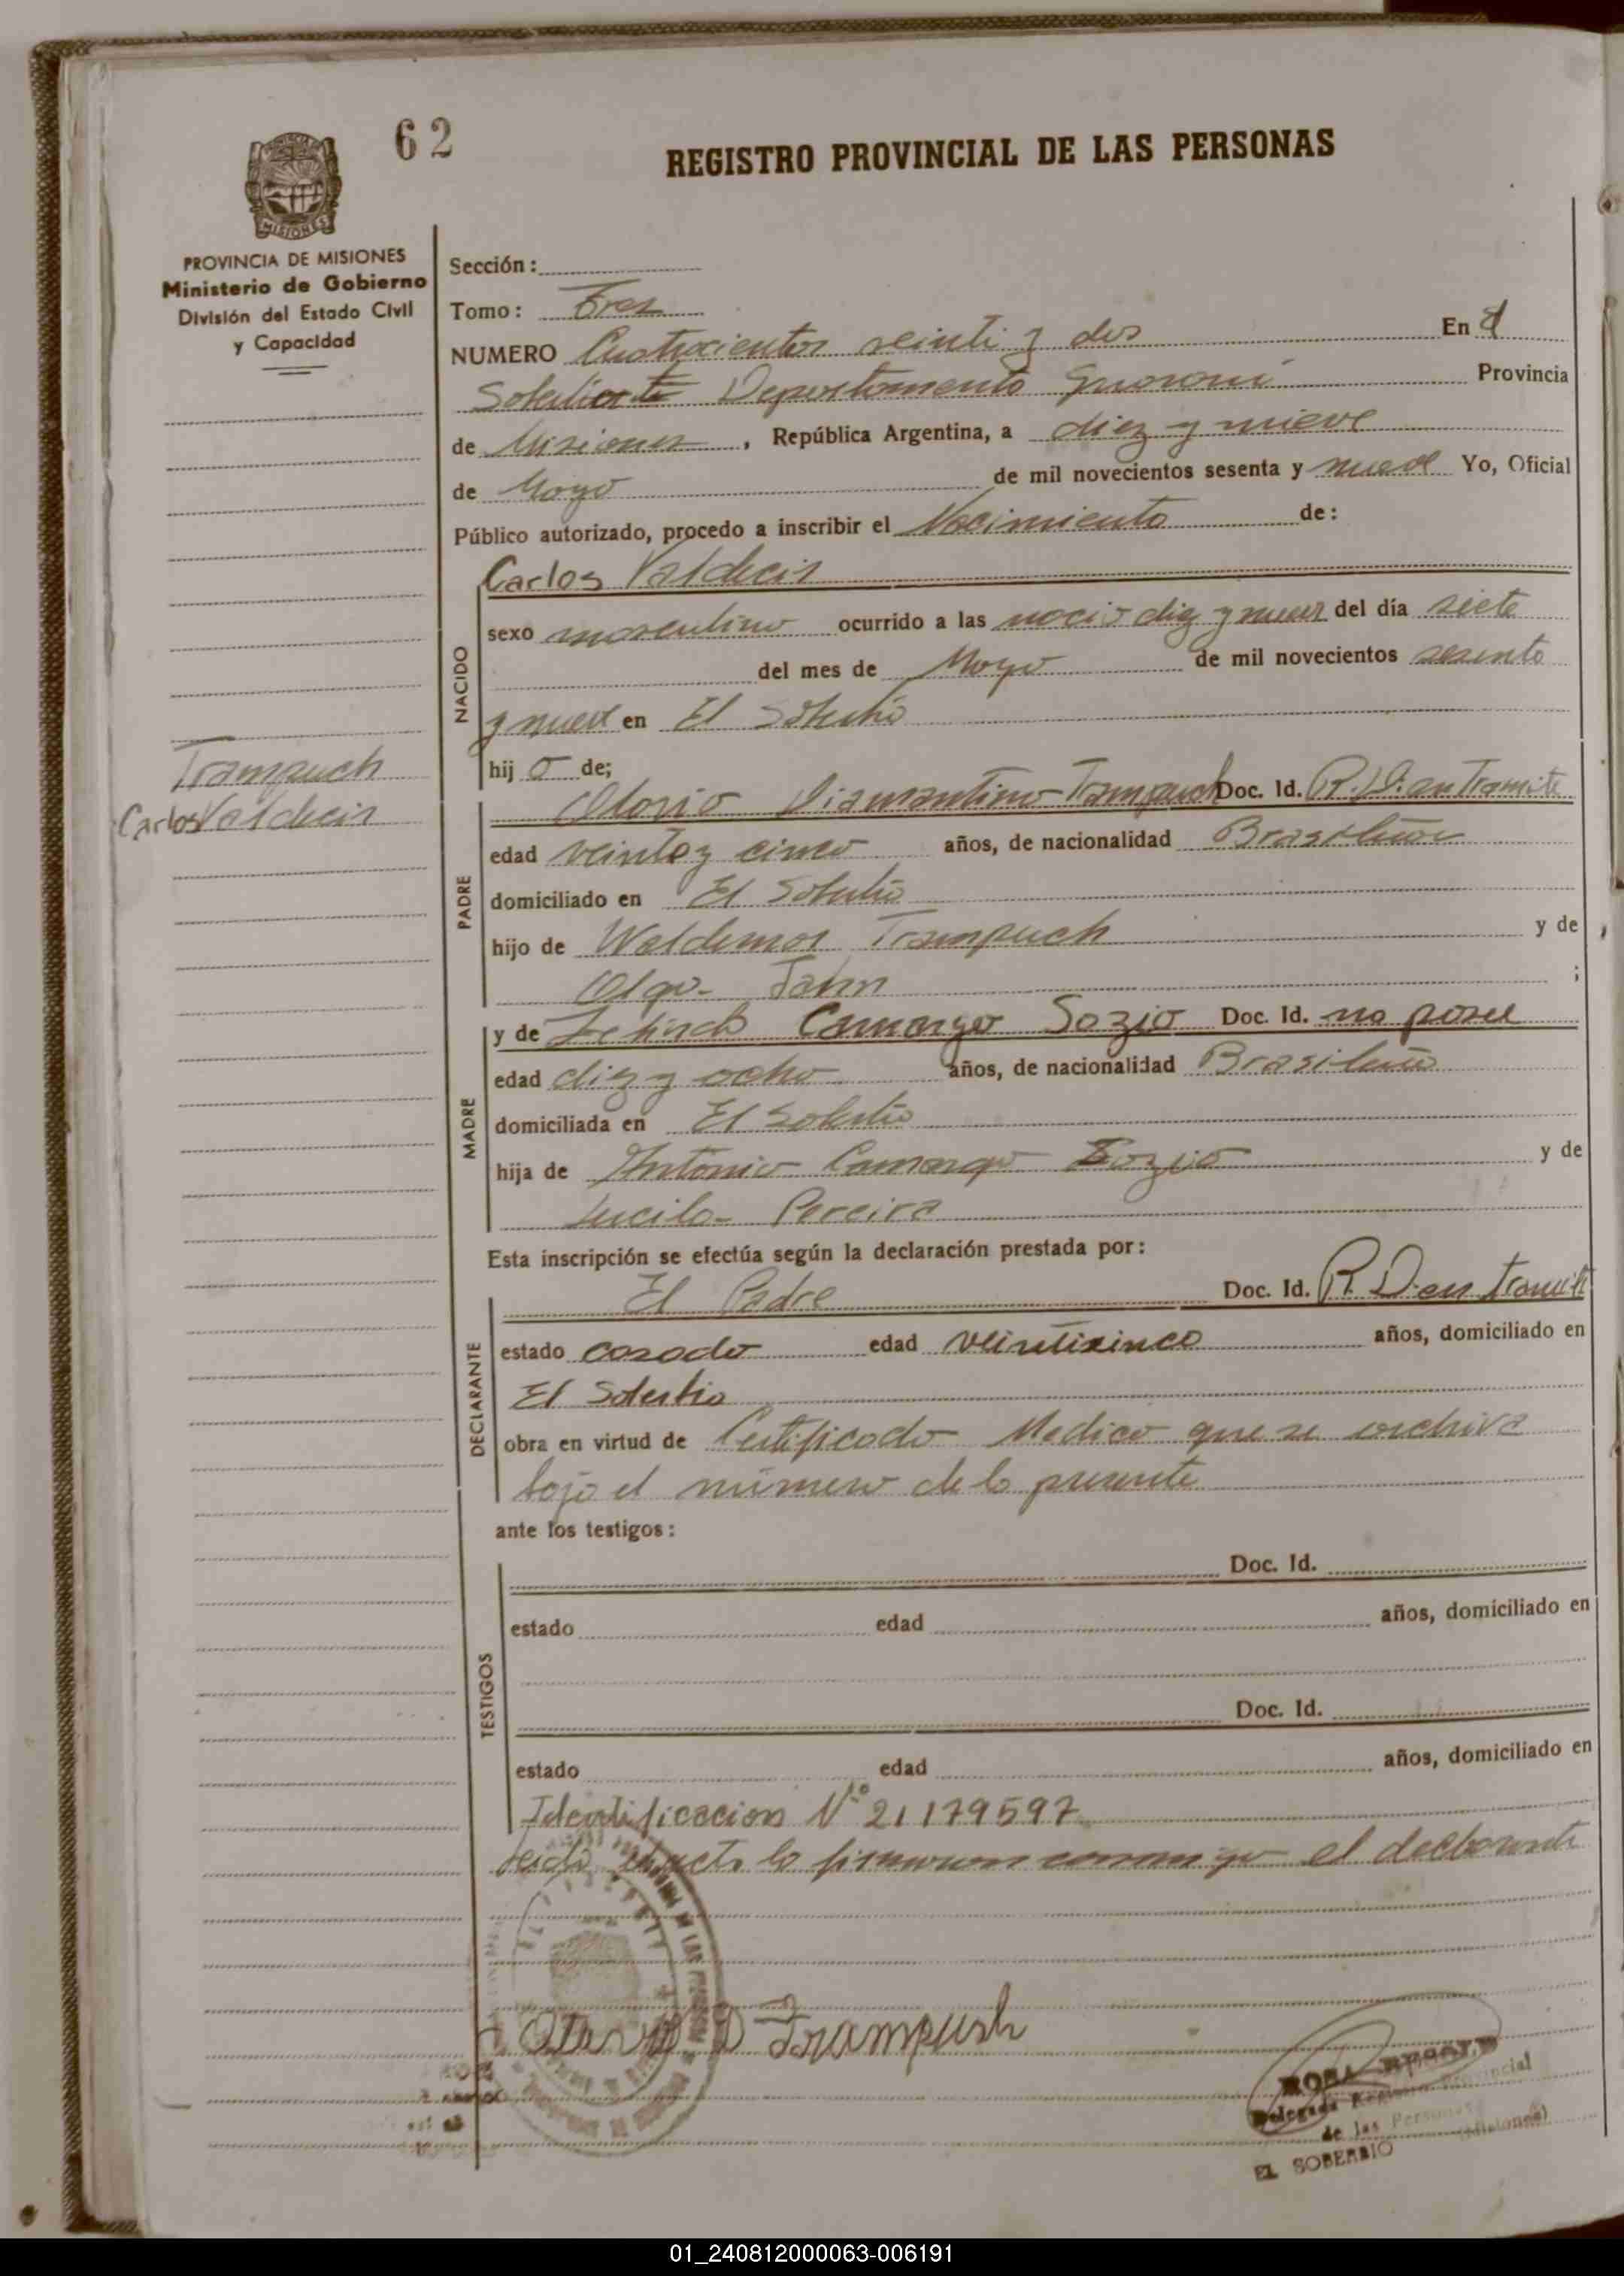 62
REGISTRO PROVINCIAL DE LAS PERSONAS
PROVINCIA DE MISIONES
Ministerio de Gobierno
División del Estado Civil
y Capacidad
Sección:
Tomo: Tres
NUMERO Cuatrocientos veinti y dos En el
Soberbio Departamento Guarani Provincia
de Misiones, República Argentina, a diez y nueve
de Mayo de mil novecientos sesenta y nueve Yo, Oficial
Público autorizado, procedo a inscribir el Nacimiento de:
Carlos Valdecir
NACIDO
sexo masculino ocurrido a las diez y nueve del día siete
del mes de Mayo de mil novecientos sesenta
y nueve en El Soberbio
hijo de;
Trampuch
Carlos Valdecir
PADRE
Diamantino Trampuch Doc. Id. R. D. en Tramite
edad veinte y cinco años, de nacionalidad Brasileña
domiciliado en El Soberbio
hijo de Waldemar Trampuch y de
Olga Jahn;
MADRE
y de Camargo Sozio Doc. Id. no posee
edad diez y ocho años, de nacionalidad Brasileña
domiciliada en El Soberbio
hija de Antonio Camargo Sozio y de
Lucila Pereira
Esta inscripción se efectúa según la declaración prestada por:
DECLARANTE
El Padre Doc. Id. R. D. en tramite
estado casado edad veinticinco años, domiciliado en
El Soberbio
obra en virtud de Certificado Medico que se archiva
bajo el número de la presente
ante los testigos:
TESTIGOS
Doc. Id.
estado edad años, domiciliado en
Doc. Id.
estado edad años, domiciliado en
Identificacion N° 21179597
Leida el acta la firmaron conmigo el declarante
D Trampush
ROSA
Delegada Registro Provincial
de las Personas
EL SOBERBIO (Misiones)
01_240812000063-006191